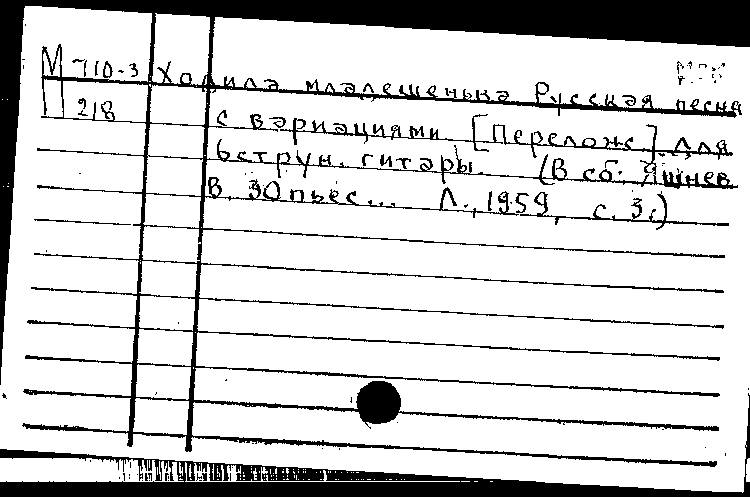 М 710-3 Ходила младешенька Русская песня
218 с вариациями. [Перелож.] для
6струн. гитары. (В сб: Яшнев
В. 30 пьес... Л., 1959, с. 3.)